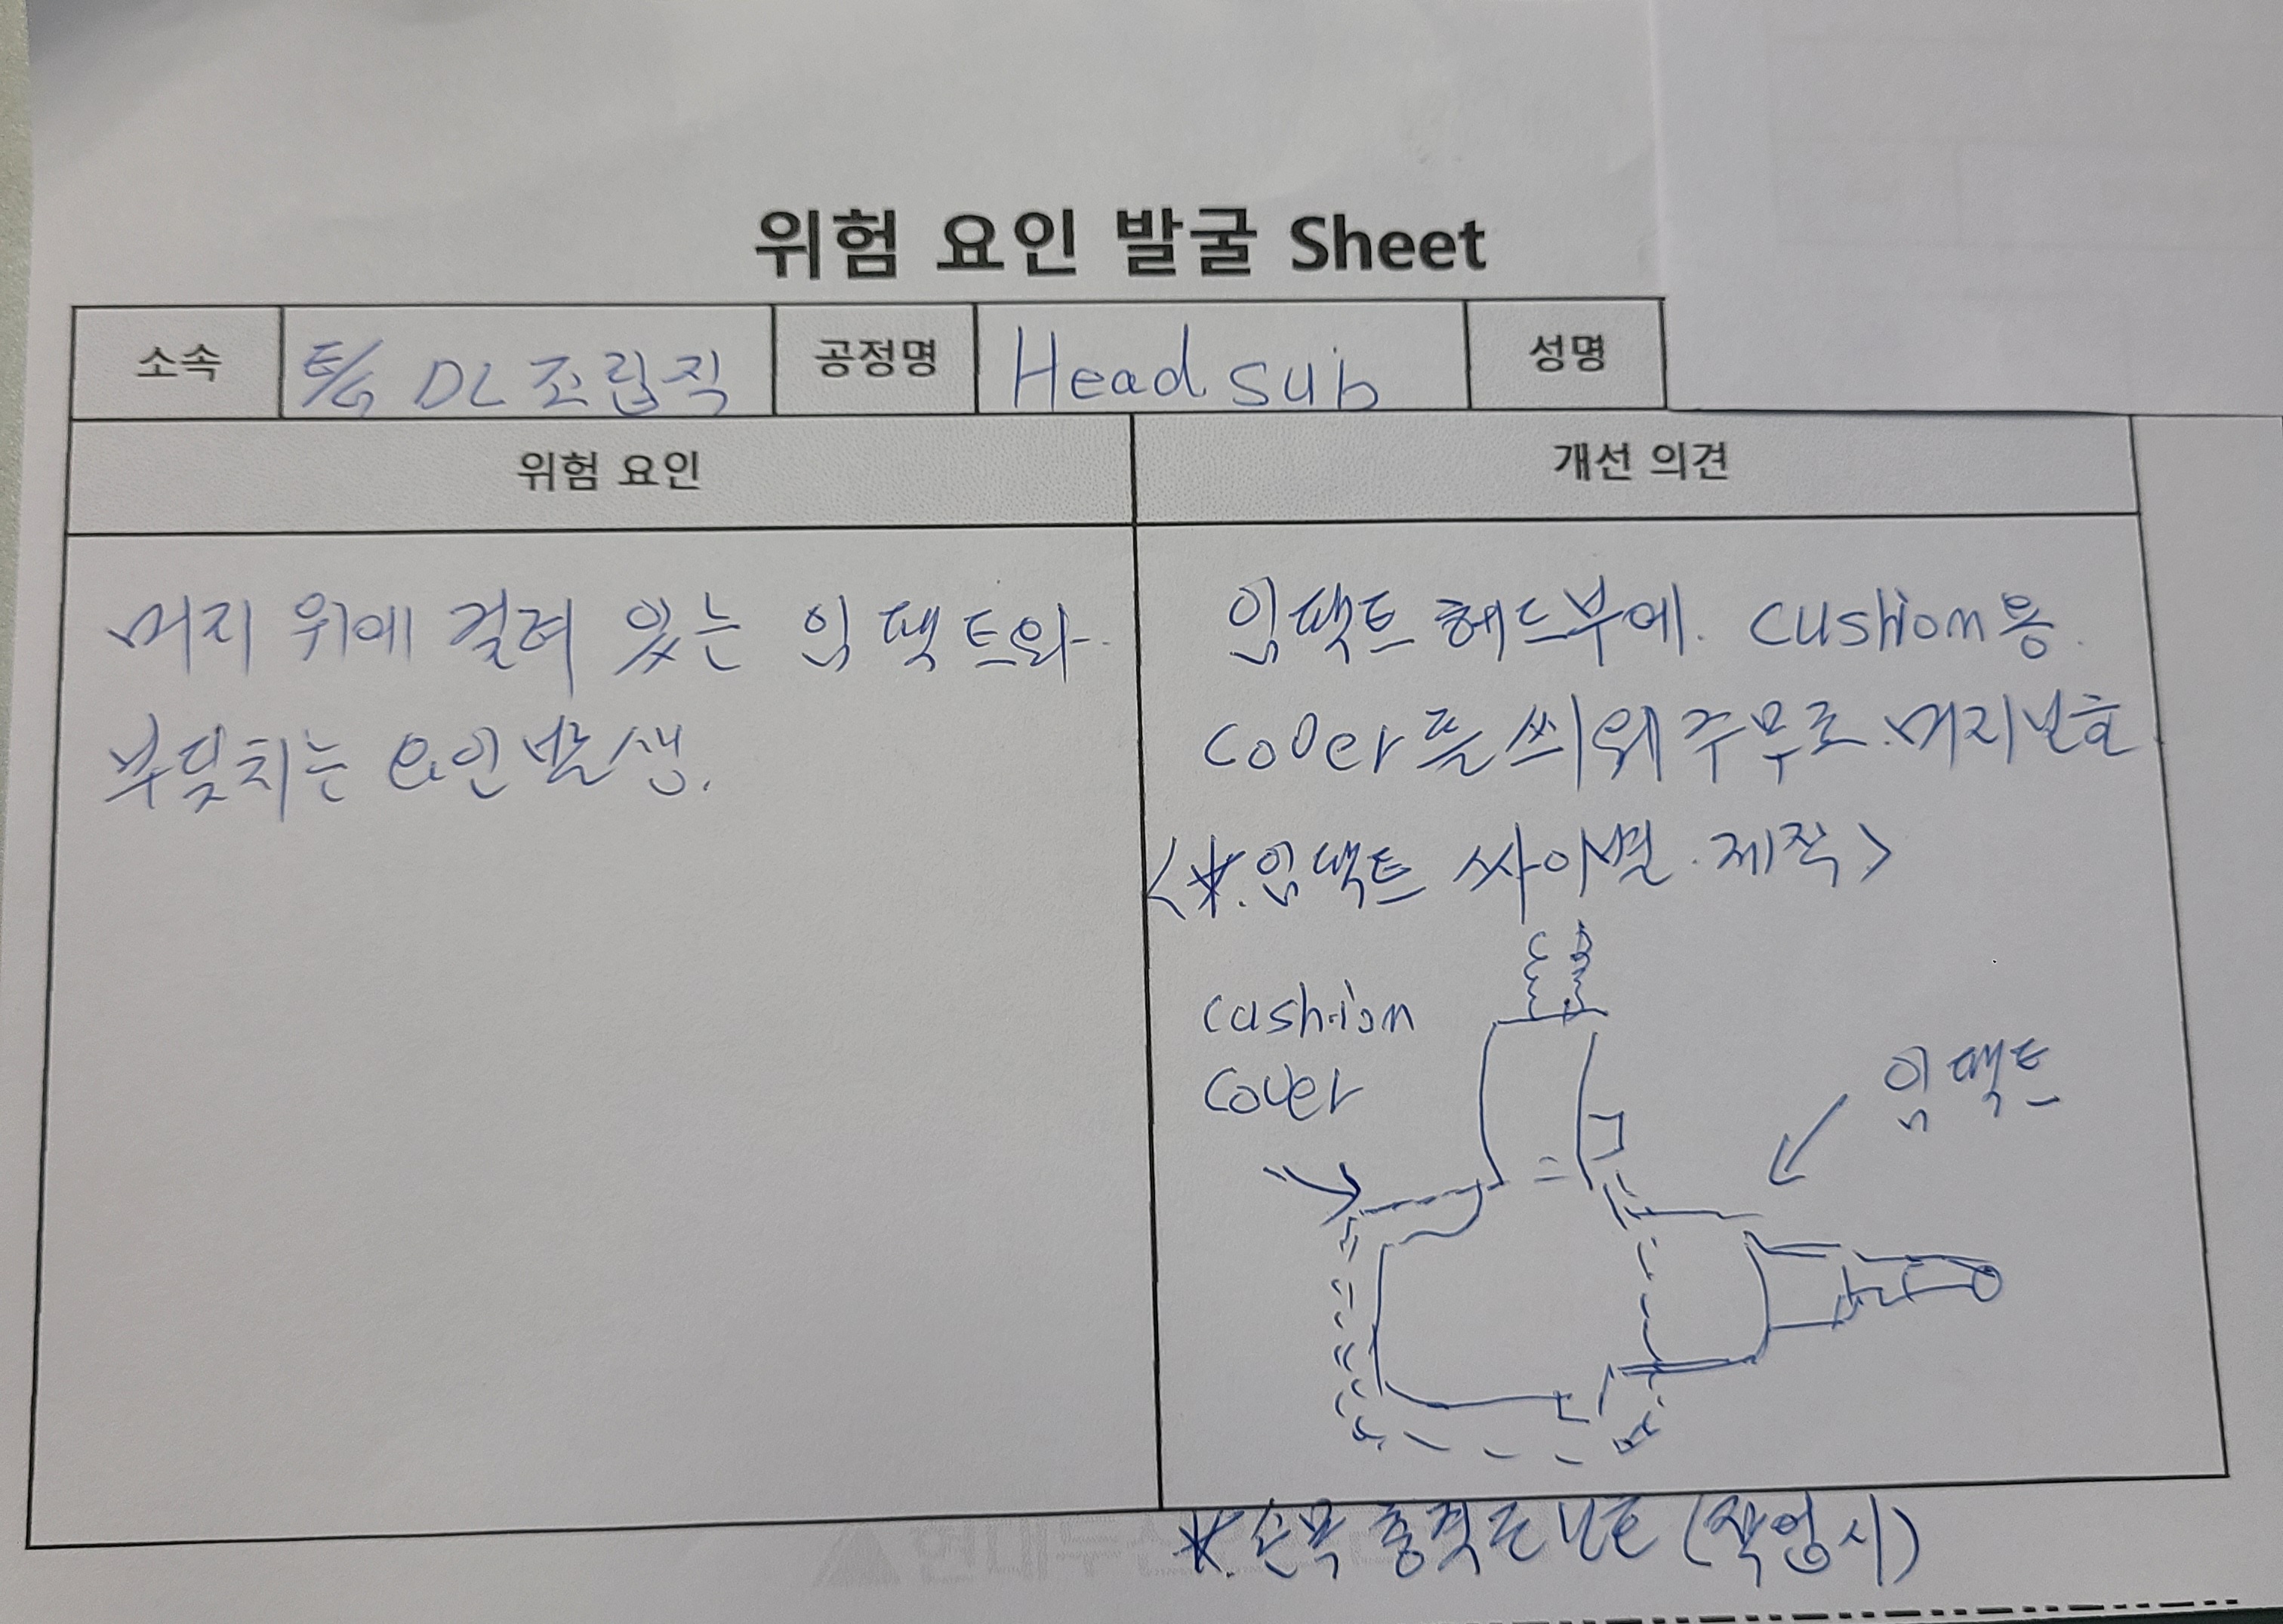 위험 요인 발굴 Sheet
소속 E/G DL 조립직 공정명 Head sub 성명
위험 요인 개선 의견
머리 위에 걸려 있는 임팩트와
부딪치는 요인발생.
임팩트 헤드부에. cushion용.
cover를 씌워 주무로. 머리보호
<※.임팩트 싸이별.제작>
cushion
cover
임팩트
※.손목 충격 (작업시)